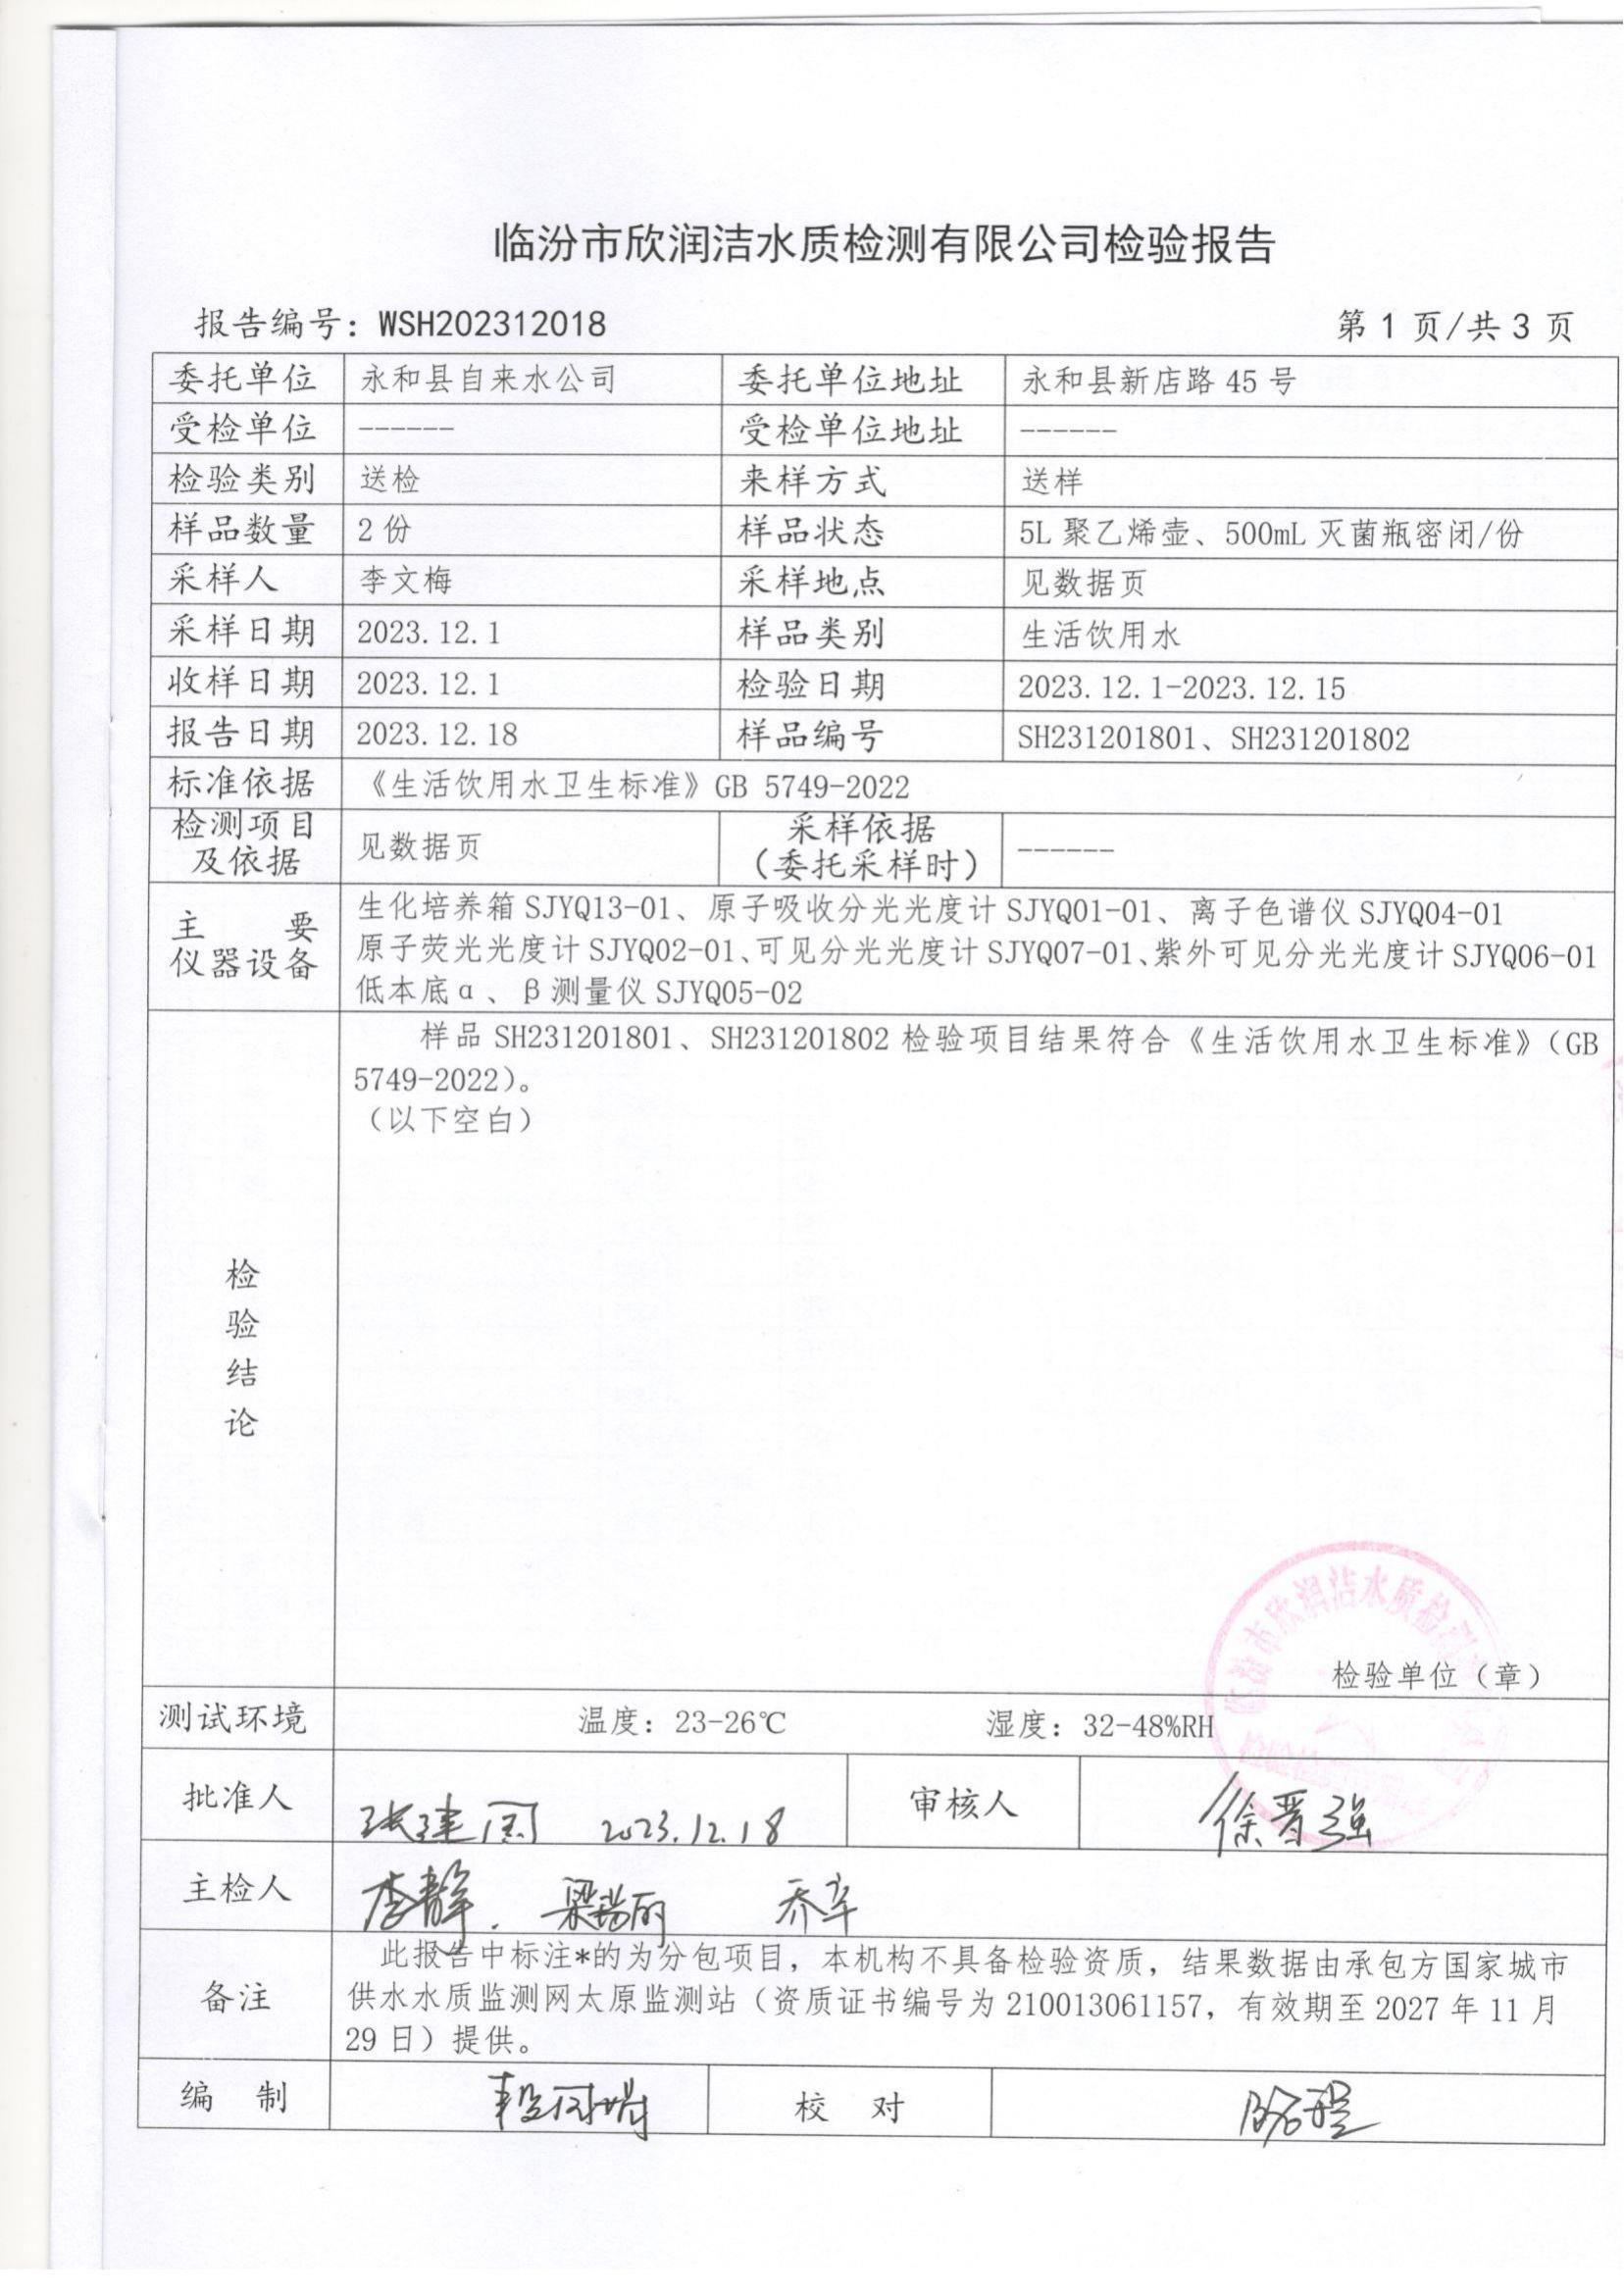 临汾市欣润洁水质检测有限公司检验报告
报告编号：WSH202312018 第 1 页/共 3 页
委托单位 永和县自来水公司 委托单位地址 永和县新店路 45 号
受检单位 ------ 受检单位地址 ------
检验类别 送检 来样方式 送样
样品数量 2 份 样品状态 5L 聚乙烯壶、500mL 灭菌瓶密闭/份
采样人 李文梅 采样地点 见数据页
采样日期 2023.12.1 样品类别 生活饮用水
收样日期 2023.12.1 检验日期 2023.12.1-2023.12.15
报告日期 2023.12.18 样品编号 SH231201801、SH231201802
标准依据 《生活饮用水卫生标准》GB 5749-2022
检测项目及依据 见数据页 采样依据（委托采样时） ------
主要仪器设备
生化培养箱 SJYQ13-01、原子吸收分光光度计 SJYQ01-01、离子色谱仪 SJYQ04-01
原子荧光光度计 SJYQ02-01、可见分光光度计 SJYQ07-01、紫外可见分光光度计 SJYQ06-01
低本底α、β测量仪 SJYQ05-02
检验结论
样品 SH231201801、SH231201802 检验项目结果符合《生活饮用水卫生标准》（GB
5749-2022）。
（以下空白）
临汾市欣润洁水质检测
检验单位（章）
测试环境 温度：23-26℃ 湿度：32-48%RH
批准人 张建国 2023.12.18 审核人 徐晋强
主检人 李静. 梁瑞丽 乔宇
备注
此报告中标注*的为分包项目，本机构不具备检验资质，结果数据由承包方国家城市
供水水质监测网太原监测站（资质证书编号为 210013061157，有效期至 2027 年 11 月
29 日）提供。
编 制 校 对